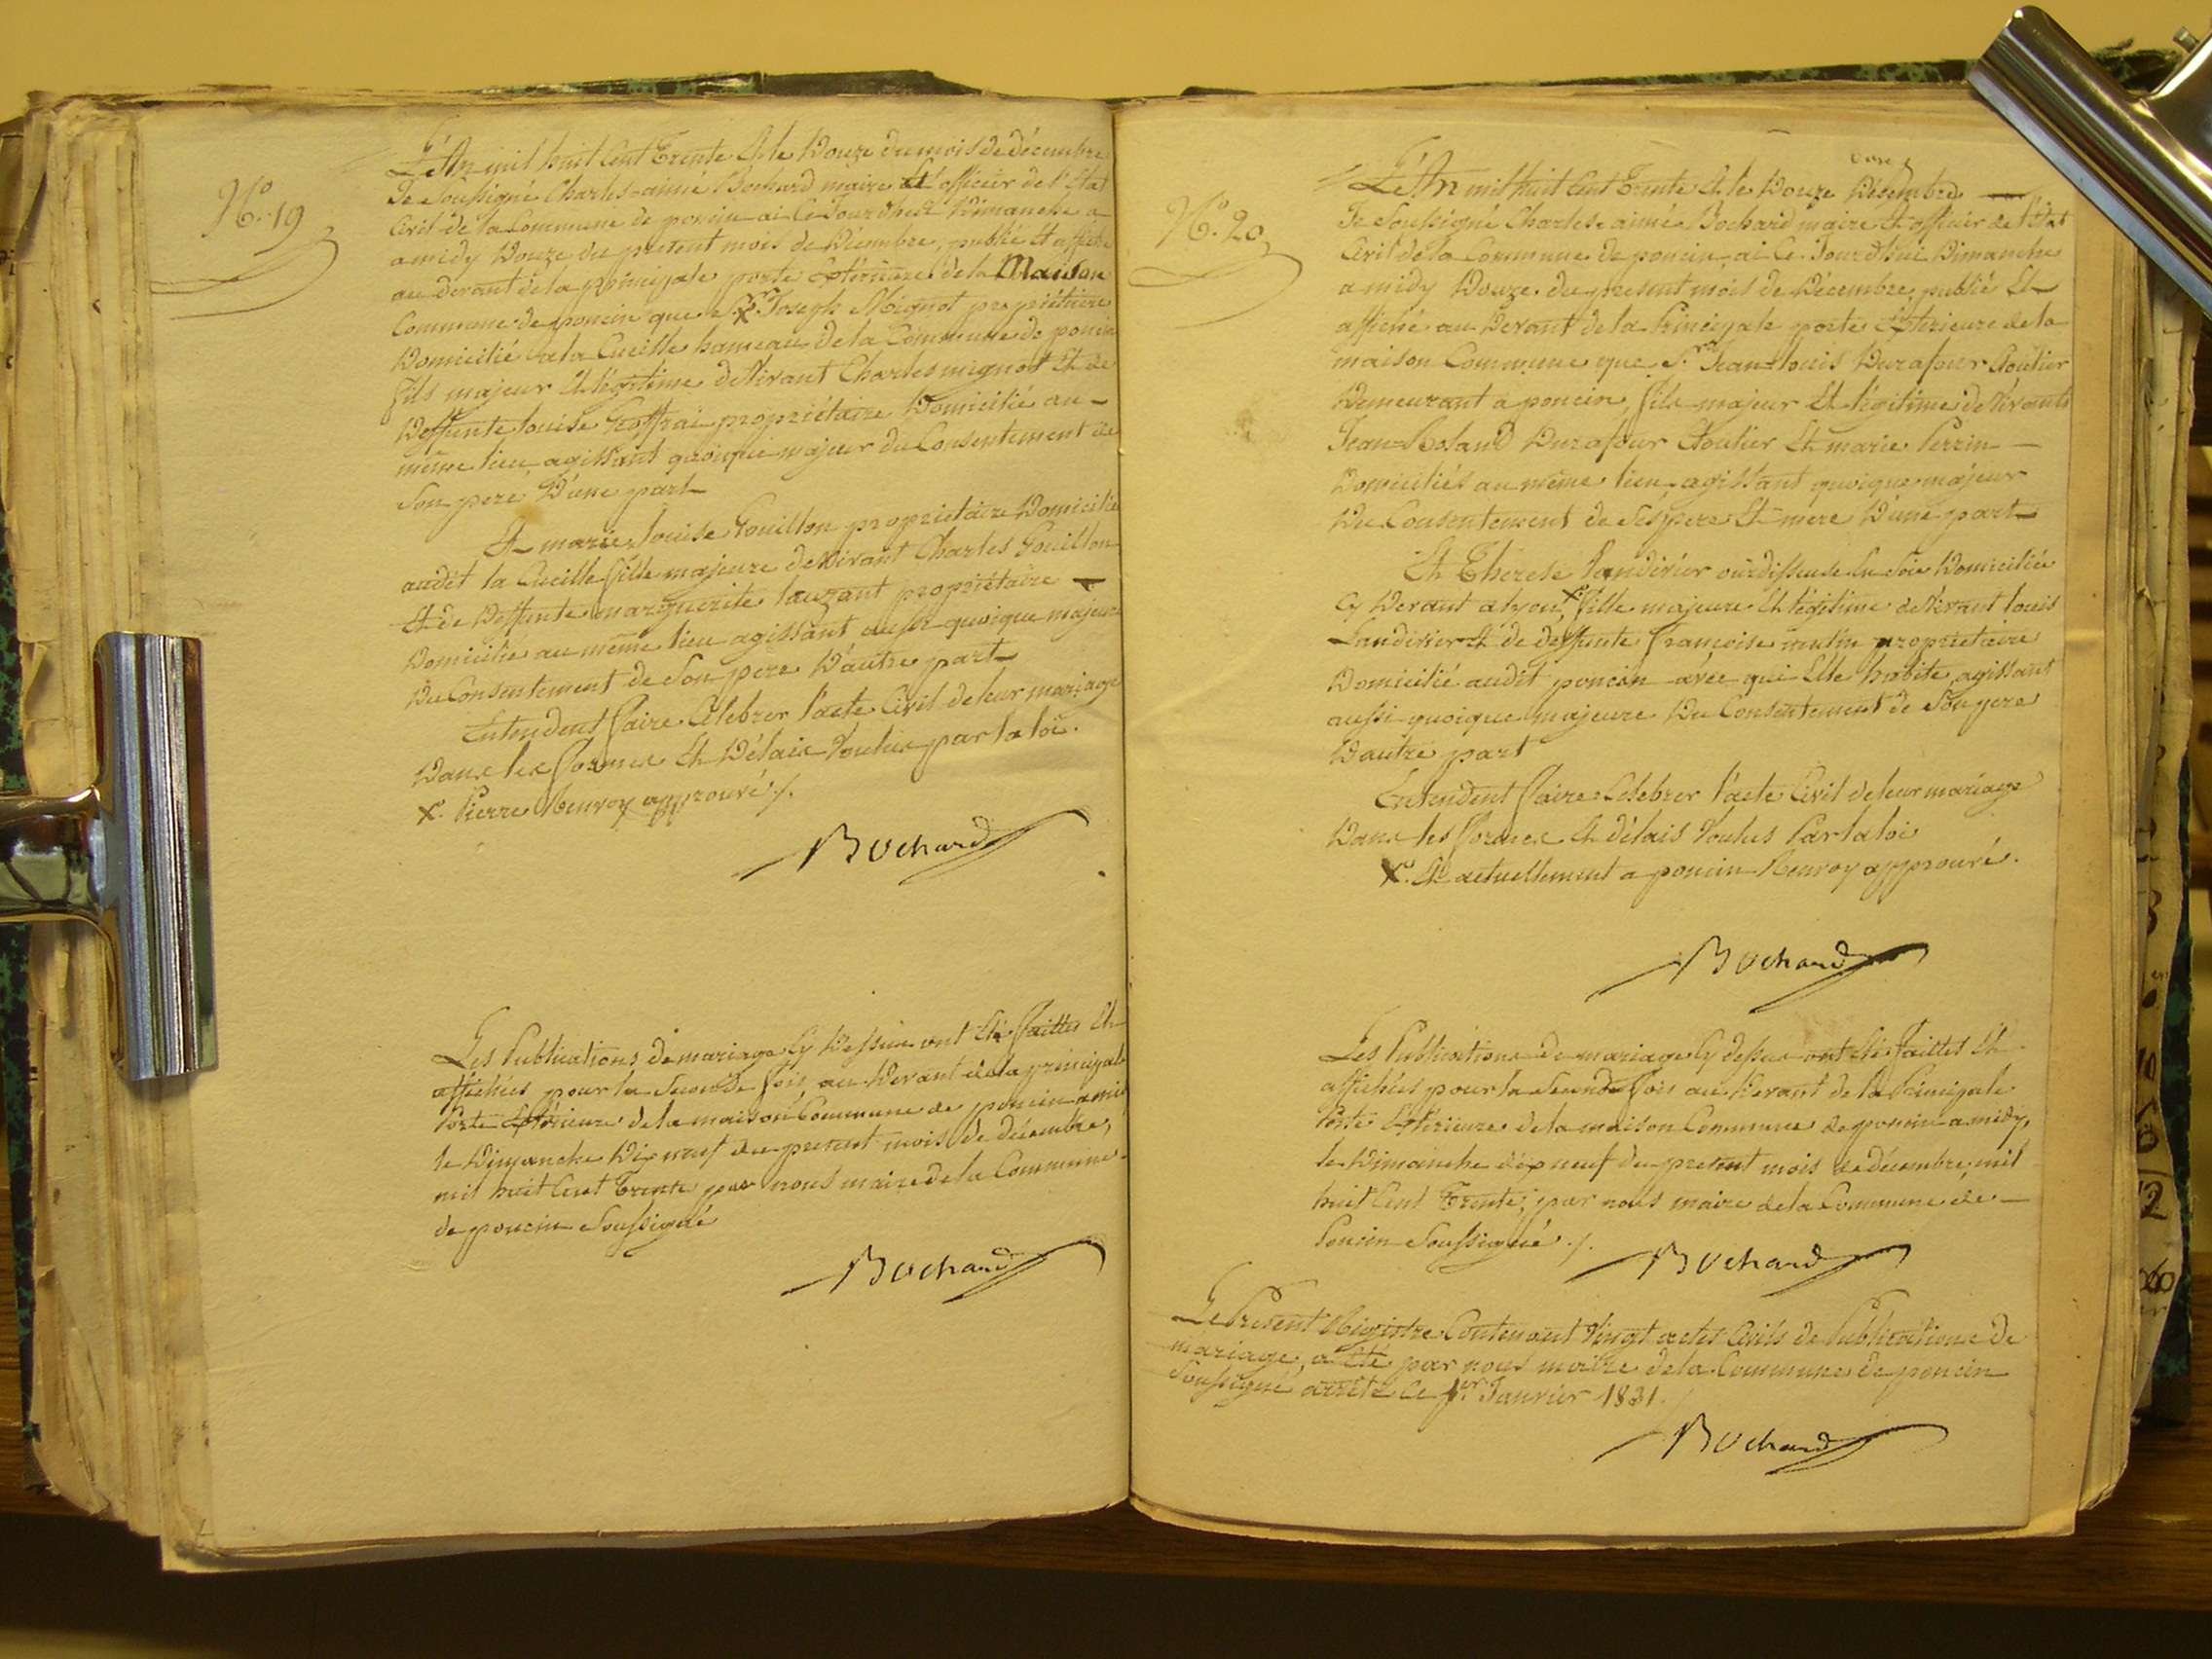 N.o 19
L'An mil huit Cent Trente & le Douze du mois de décembre
Je Soussigné Charles-aimé Bochard maire et officier de l'état
Civil de la Commune de poncin ai Ce Jourdhui Dimanche a
a midy Douze du présent mois de Décembre, publié et affiché
au devant de la principale porte Extérieure de la Maison
Commune de poncin que S.r X Joseph Mignot propriétaire
Domicilié a la Cueille hameau de la Commune de poncin
fils majeur et légitime de Vivant Charles mignot Et de
Deffunte louise Geoffrai propriétaire Domicilié au -
même lieu, agissant quoique majeur du Consentement de
Son pere D'une part
Et marie louise Gouillon propriétaire Domiciliée
audit la Cueille fille majeure de Vivant Charles Gouillon
Et de Deffunte marguerite lauzant propriétaire
Domicilié au même lieu agissant aussi quoique majeure
Du Consentement de Son pere D'autre part
Entendent faire Célébrer l'acte Civil de leur mariage
Dans les formes Et Délais Voulus par la loi.
X. Pierre Renvoy approuvé /.
Bochard
Les Publications de mariage Cy Dessus ont Eté faittes Et
affichées pour la Seconde fois, au Devant de la principale
Porte Extérieure de la maison Commune de poncin a midy
le Dimanche Dix neuf du present mois de décembre,
mil huit Cent Trente par nous maire de la Commune
de poncin Soussigné
Bochard
N.o 20
L'An mil huit Cent Trente & le Douze Décembre
Je Soussigné Charles-aimé Bochard maire Et officier de l'état
Civil de la Commune de poncin ai Ce Jourdhui Dimanche
a midy Douze du present mois de Décembre, publié Et
affiché au Devant de la Principale porte Extérieure de la
maison Commune que S.r Jean-louis Durafour Cloutier
Demeurant a poncin, fils majeur Et légitime de Vivants
Jean-Roland Durafour Cloutier Et marie Perrin
Domiciliés au même lieu agissant quoique majeur
Du Consentement de Ses pere Et mere D'une part
Et Thérèse landivier ourdisseuse En Soie Domiciliée
Cy Devant a lyon X fille majeure Et légitime de Vivant louis
Landivier Et de deffunte françoise propriétaire
Domicilié audit poncin avec qui Elle habite, agissant
aussi quoique majeure Du Consentement de Son pere
D'autre part
Entendent faire Célébrer l'acte Civil de leur mariage
Dans les formes Et délais Voulus Par la loi
X. Et actuellement a poncin Renvoy approuvé.
Bochard
Les Publications de mariage Cy dessus ont Eté faittes Et
affichées pour la Seconde fois au Devant de la Principale
Porte Extérieure de la maison Commune de poncin a midy,
le Dimanche dix neuf du present mois de décembre, mil
huit Cent Trente, par nous maire de la Commune de
Poncin Soussigné /.
Bochard
Le Présent Régistre Contenant Vingt actes Civils de Publications de
mariage, a Eté par nous maire de la Commune de poncin
Soussigné arrêté Ce 1.er Janvier 1831
Bochard